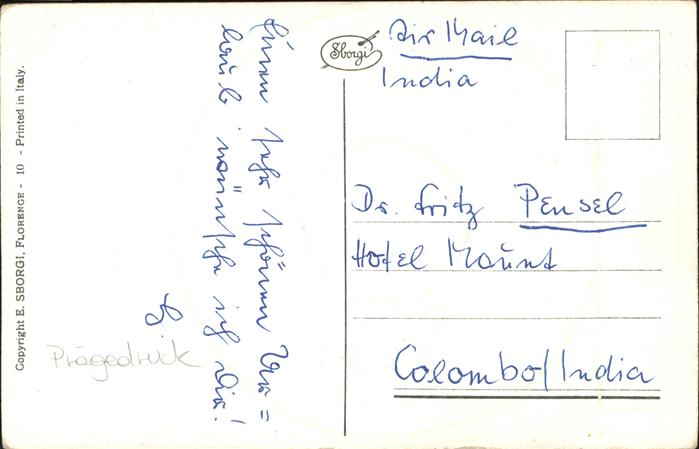 Copyright E. SBORGI, FLORENCE - 10 - Printed in Italy.
Einen sehr schönen Ur=
laub wünsche ich Dir!
Prägedruck
Sborgi
Air Mail
India
Dr. Fritz Pensel
Hotel Mount
Colombo/India